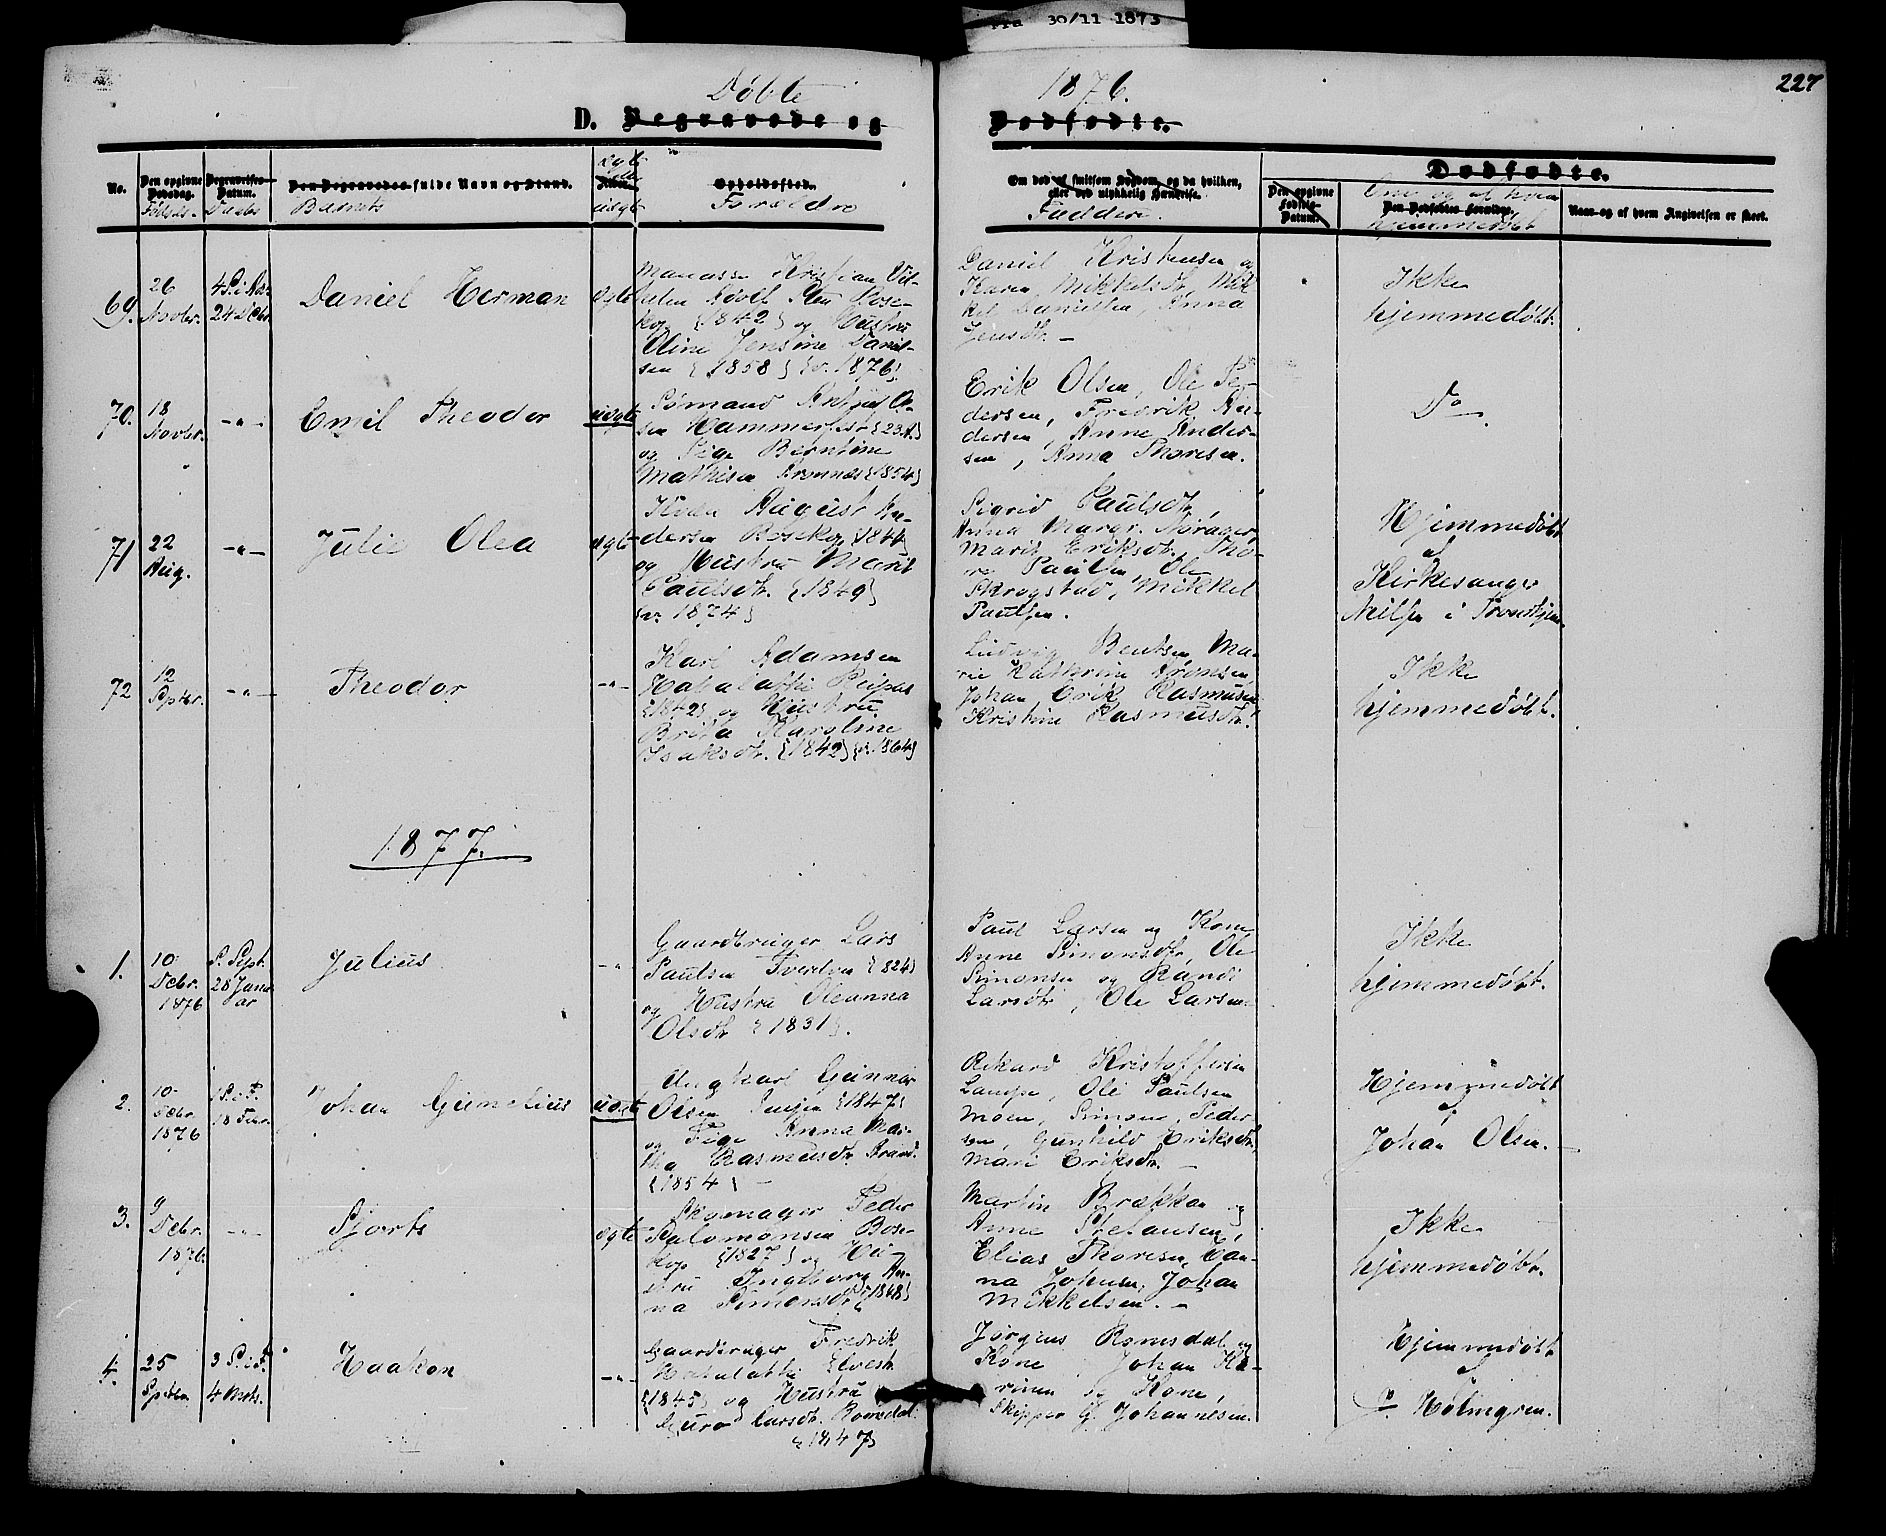 Fra 30/11 1873
227
Døbte 1876.
D. Begravede og Dødfødte.
No.
Den opgivne Dødsdag.
Fødsels-
Begravelses Datum.
Daabs
Den Begravedes fulde Navn og Stand.
Barnets
Alder.
ægte
eller
uægte
Opholdssted.
Forældre
Om død af smitsom Sygdom, og da hvilken,
eller ved ulykkelig Hændelse.
Faddere.
Dødfødte.
Den opgivne Fødsels Datum.
Om og af hvem
Den Dødfødtes Forældre.
hjemmedøbt
Naar og af hvem Angivelsen er skeet.
69.
26
Novbr.
24 Decbr.
Daniel Herman
ægte
Manasse Kristian Vil-
helm Adolf Bose-
kop {1842} og Hustru
Oline Jensine Daniel-
sen {1858} {v. 1876}
Daniel Kristensen og
Karen Mikkelsdtr, Mik-
kel Danielsen, Anna
Jensdtr. -
Ikke
hjemmedøbt.
70.
18
Novbr.
-"-
Emil Theodor
uægte
Sømand
sen Hammerfest {23 A.}
og Pige Berntine
Mathisen Bronnæs {1854}
Erik Olsen, Ole Pe-
dersen, Fredrik An-
dersen, Anne Ander-
sen, Anna Thoresen.
Do
71
22
Aug.
-"-
Julie Olea
ægte
August An-
dersen Bosekop {1844}
og Hustru Marit
Paulsdtr. {1849}
{v. 1874}
Sigrid Paulsdtr,
Anna Margr. Norager,
Marit Eriksdtr, Tho-
re Paulsen, Ole
Skrogstad, Mikkel
Paulsen.
Hjemmedøbt
af
Kirkesanger
Nilsen i Trondhjem.
72
12
Septbr.
-"-
Theodor
-"-
Karl Adamsen
Mathisen Raipas
{1842} og Hustru
Brita Karoline
Isaksdtr. {1842} {v. 1864}
Ludvig Bentsen, Ma-
rie Kathrine Aronsen,
Johan Erik Rasmusen
Kristine Rasmusdtr.
Ikke
hjemmedøbt.
1877.
1.
10
Decbr.
1876
S. Sept.
28 Janu-
ar
Julius
-"-
Gaardbruger Lars
Paulsen Tverelven {1824}
og Hustru Oleanna
Olsdtr {1831}.
Paul Larsen og Kone
Anne Simonsdtr, Ole
Simonsen og Randi
Larsdtr, Ole Larsen.
Ikke
hjemmedøbt.
2.
10
Decbr.
1876
1 S. i F.
18 Febr.
Johan Gunelius
uægte
Ungkarl Gunnar
Olsen Senjen {1847}
og Pige Anna Mar-
tha Rasmusdtr.
{1854} -
Rikard Kristoffersen
Lampe, Ole Paulsen
Moen, Simon Peder-
sen, Gunhild Eriksdtr,
Mari Eriksdtr. -
Hjemmedøbt
af
Johan Olsen. -
3.
9
Decbr.
1876.
-"-
Sjorts
ægte
Skomager Peder
Salomonsen Bose-
kop {1827} og Hu-
stru Ingeborg An-
na Simonsdtr {1848}
Martin Brækkan og
Anne Stefansen,
Elias Thoresen, Han-
na Johnsen, Johan
Mikkelsen. -
Ikke
hjemmedøbt.
4.
25
Septbr.
3 S. i F.
4 Marts.
Haakon
-"-
Gaardbruger Fredrik
Elvesta
{1845} og Hustru
Guro Larsdtr. Romsdal
{1847}
Jørgens Romsdal og
Kone, Johan Ka-
rinen og Kone,
Skipper G. Johannesen.
Hjemmedøbt
af
Holmgren.